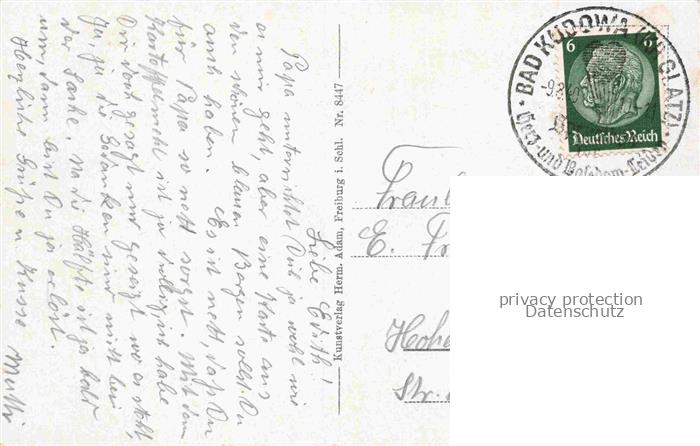 Liebe Edith!
Papa unterrichtet Dich ja wohl wie
es mir geht, aber eine Karte aus
den schönen blauen Bergen sollst Du
auch haben. Es ist nett, daß Du
für Papa so nett sorgst. Mit dem
Kartoffelmehl ist ja habe
Dir doch gesagt und gezeigt wo es steht,
Ja, ja die Gedanken sind nicht bei
der Sache. Na die Hälfte ist ja bald
um, dann bist Du ja erlöst.
Herzliche Grüße u Küsse Mutti
Kunstverlag Herm. Adam, Freiburg i. Schl. Nr. 8447
BAD KUDOWA GLATZ)
Herz- und Basedow-
6 6
Deutsches Reich
E.
Str.
privacy protection
Datenschutz